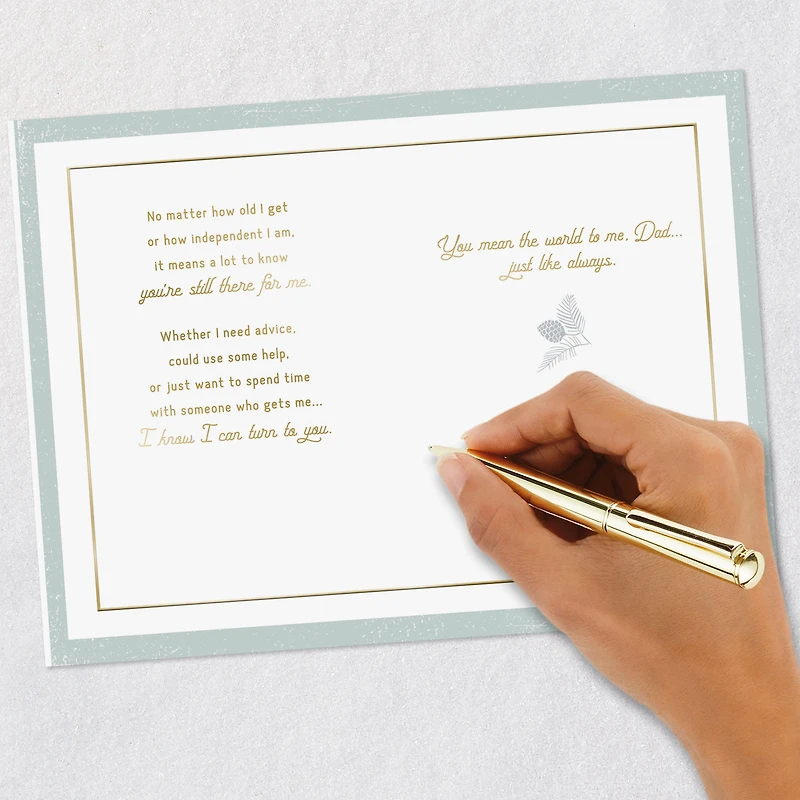 No matter how old I get
or how independent I am,
it means a lot to know
you're still there for me.
Whether I need advice,
could use some help,
or just want to spend time
with someone who gets me...
I know I can turn to you.
You mean the world to me, Dad...
just like always.